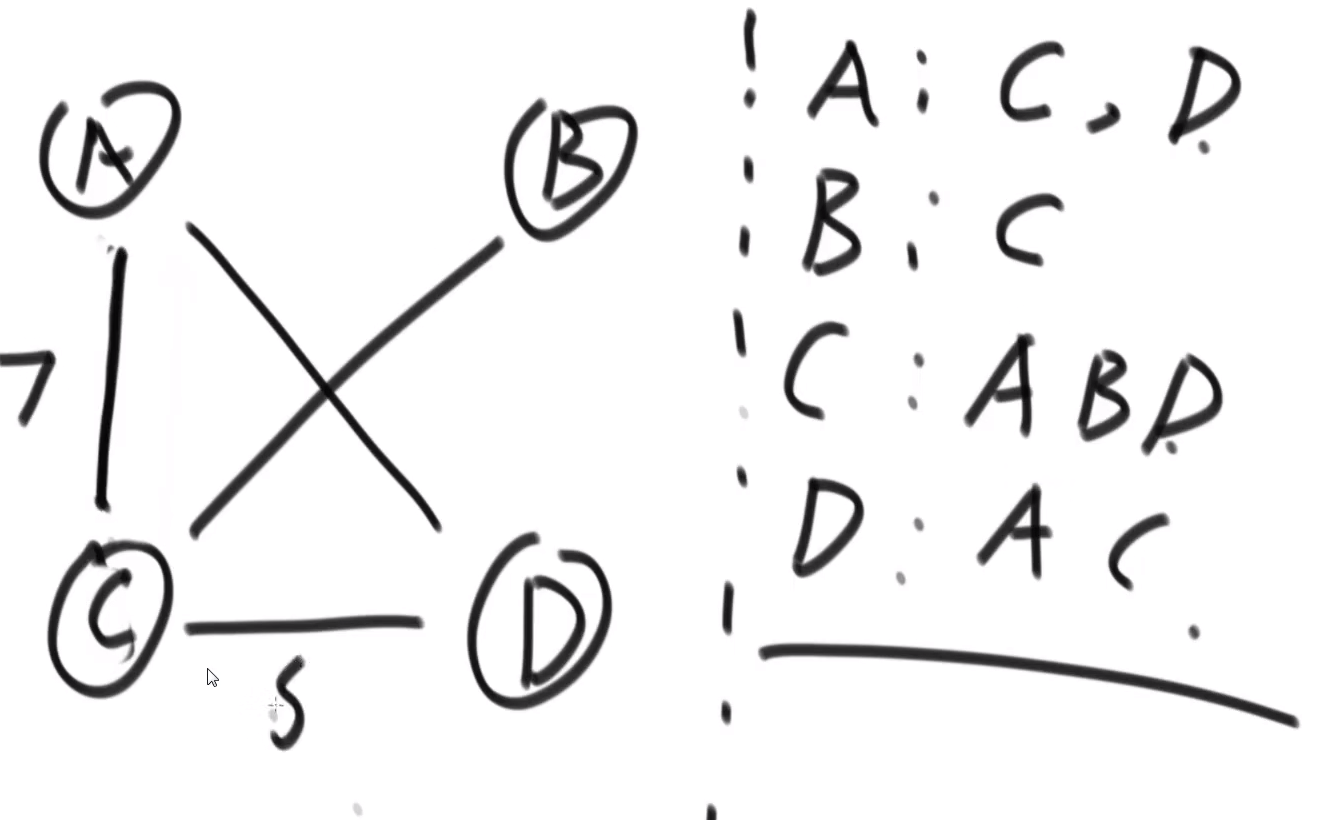 A
B
7
C
D
5
A : C, D
B : C
C : A B D
D : A C